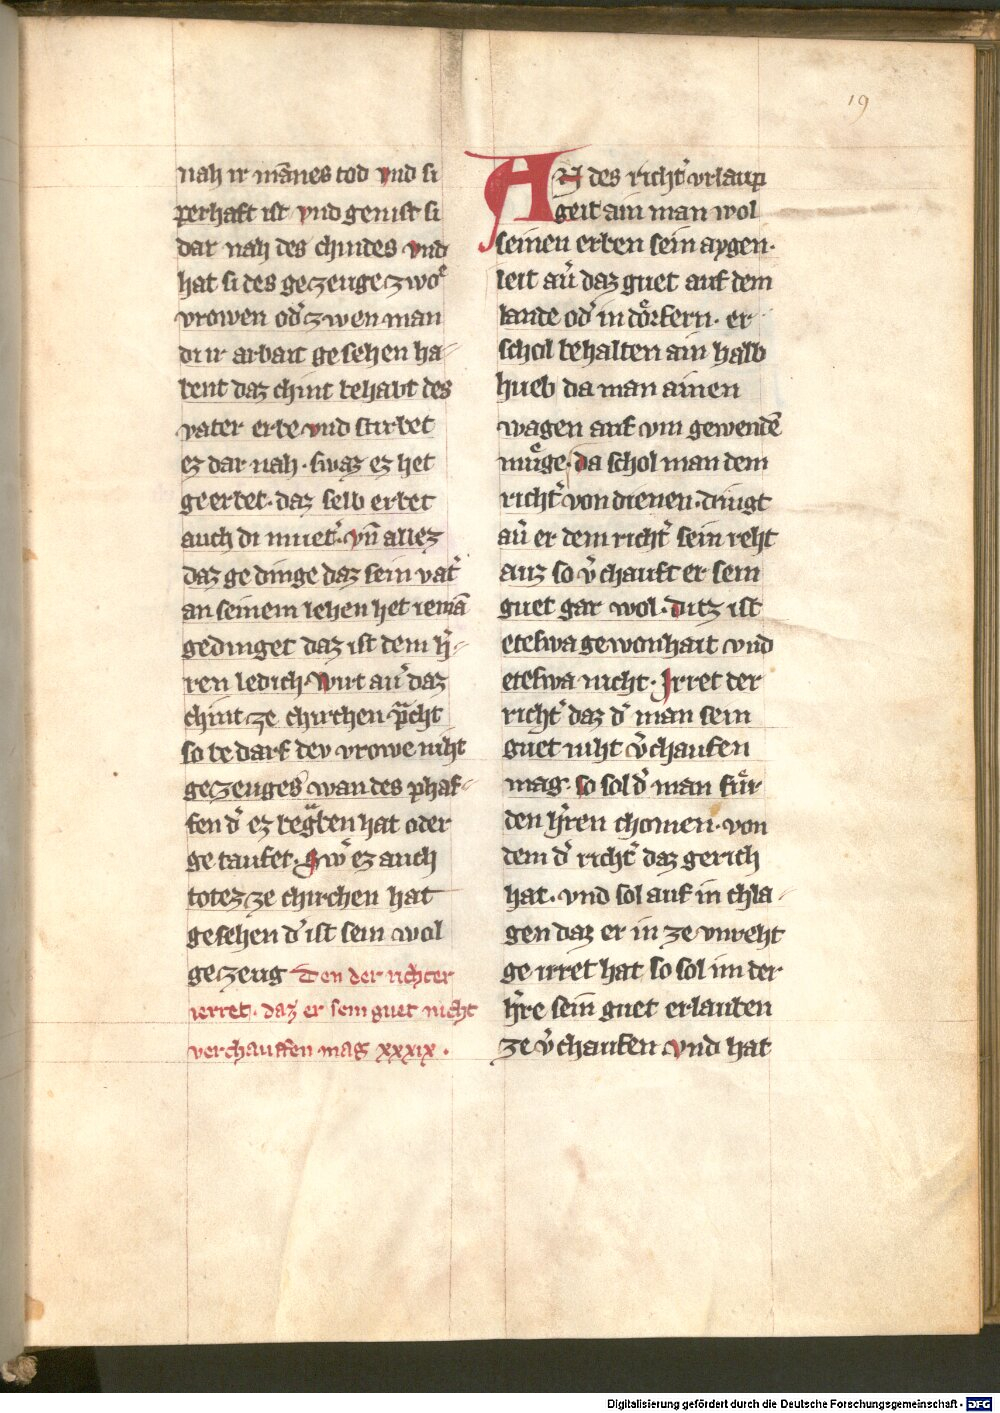 19
nah ir mānes tod vnd si
perhaft ist vnd genist si
dar nah des chindes vnd
hat si des gezeuge zwoͤ
vrowen od̾ zwen man
di ir arbait gesehen ha-
bent daz chint behabt des
vater erbe vnd stirbet
ez dar nah. swaz ez het
geerbet. daz selb erbet
auch di muet̾. vn̄ allez
daz gedinge daz sein vat̾
an seinem lehen het iemā
gedinget daz ist dem h̾-
ren ledich. Wirt au̾ daz
chint ze chirchen p̾cht
so bedarf dev vrowe niht
gezeuges wan des phaf-
fen d̾ ez begͣben hat oder
getaufet. Sw̾ ez auch
totez ze chirchen hat
gesehen d̾ ist sein wol
gezeug Den der richter
ierret. daz er sein guet nicht
verchauffen mag xxxix.
AN des richt̾ vrlaup
geit ain man wol
seinen erben sein aygen.
leit au̾ daz guet auf dem
lande od̾ in doͤrfern. er
schol behalten ain halb
hueb da man ainen
wagen auf vm gewendē
muͤge. da schol man dem
richt̾ von dienen. dingt
au̾ er dem richt̾ sein reht
auz so v̾chauft er sein
guet gar wol. ditz ist
eteswa gewonhait vnd
eteswa nicht. Irret der
richt̾ daz d̾ man sein
guet niht v̾chaufen
mag. so sol d̾ man fuͤr
den h̾ren chomen. von
dem d̾ richt̾ daz gerich
hat. vnd sol auf in chla-
gen daz er in ze vnreht
geirret hat so sol im der
h̾re sein guet erlauben
ze v̾chaufen vnd hat
Digitalisierung gefördert durch die Deutsche Forschungsgemeinschaft - DFG